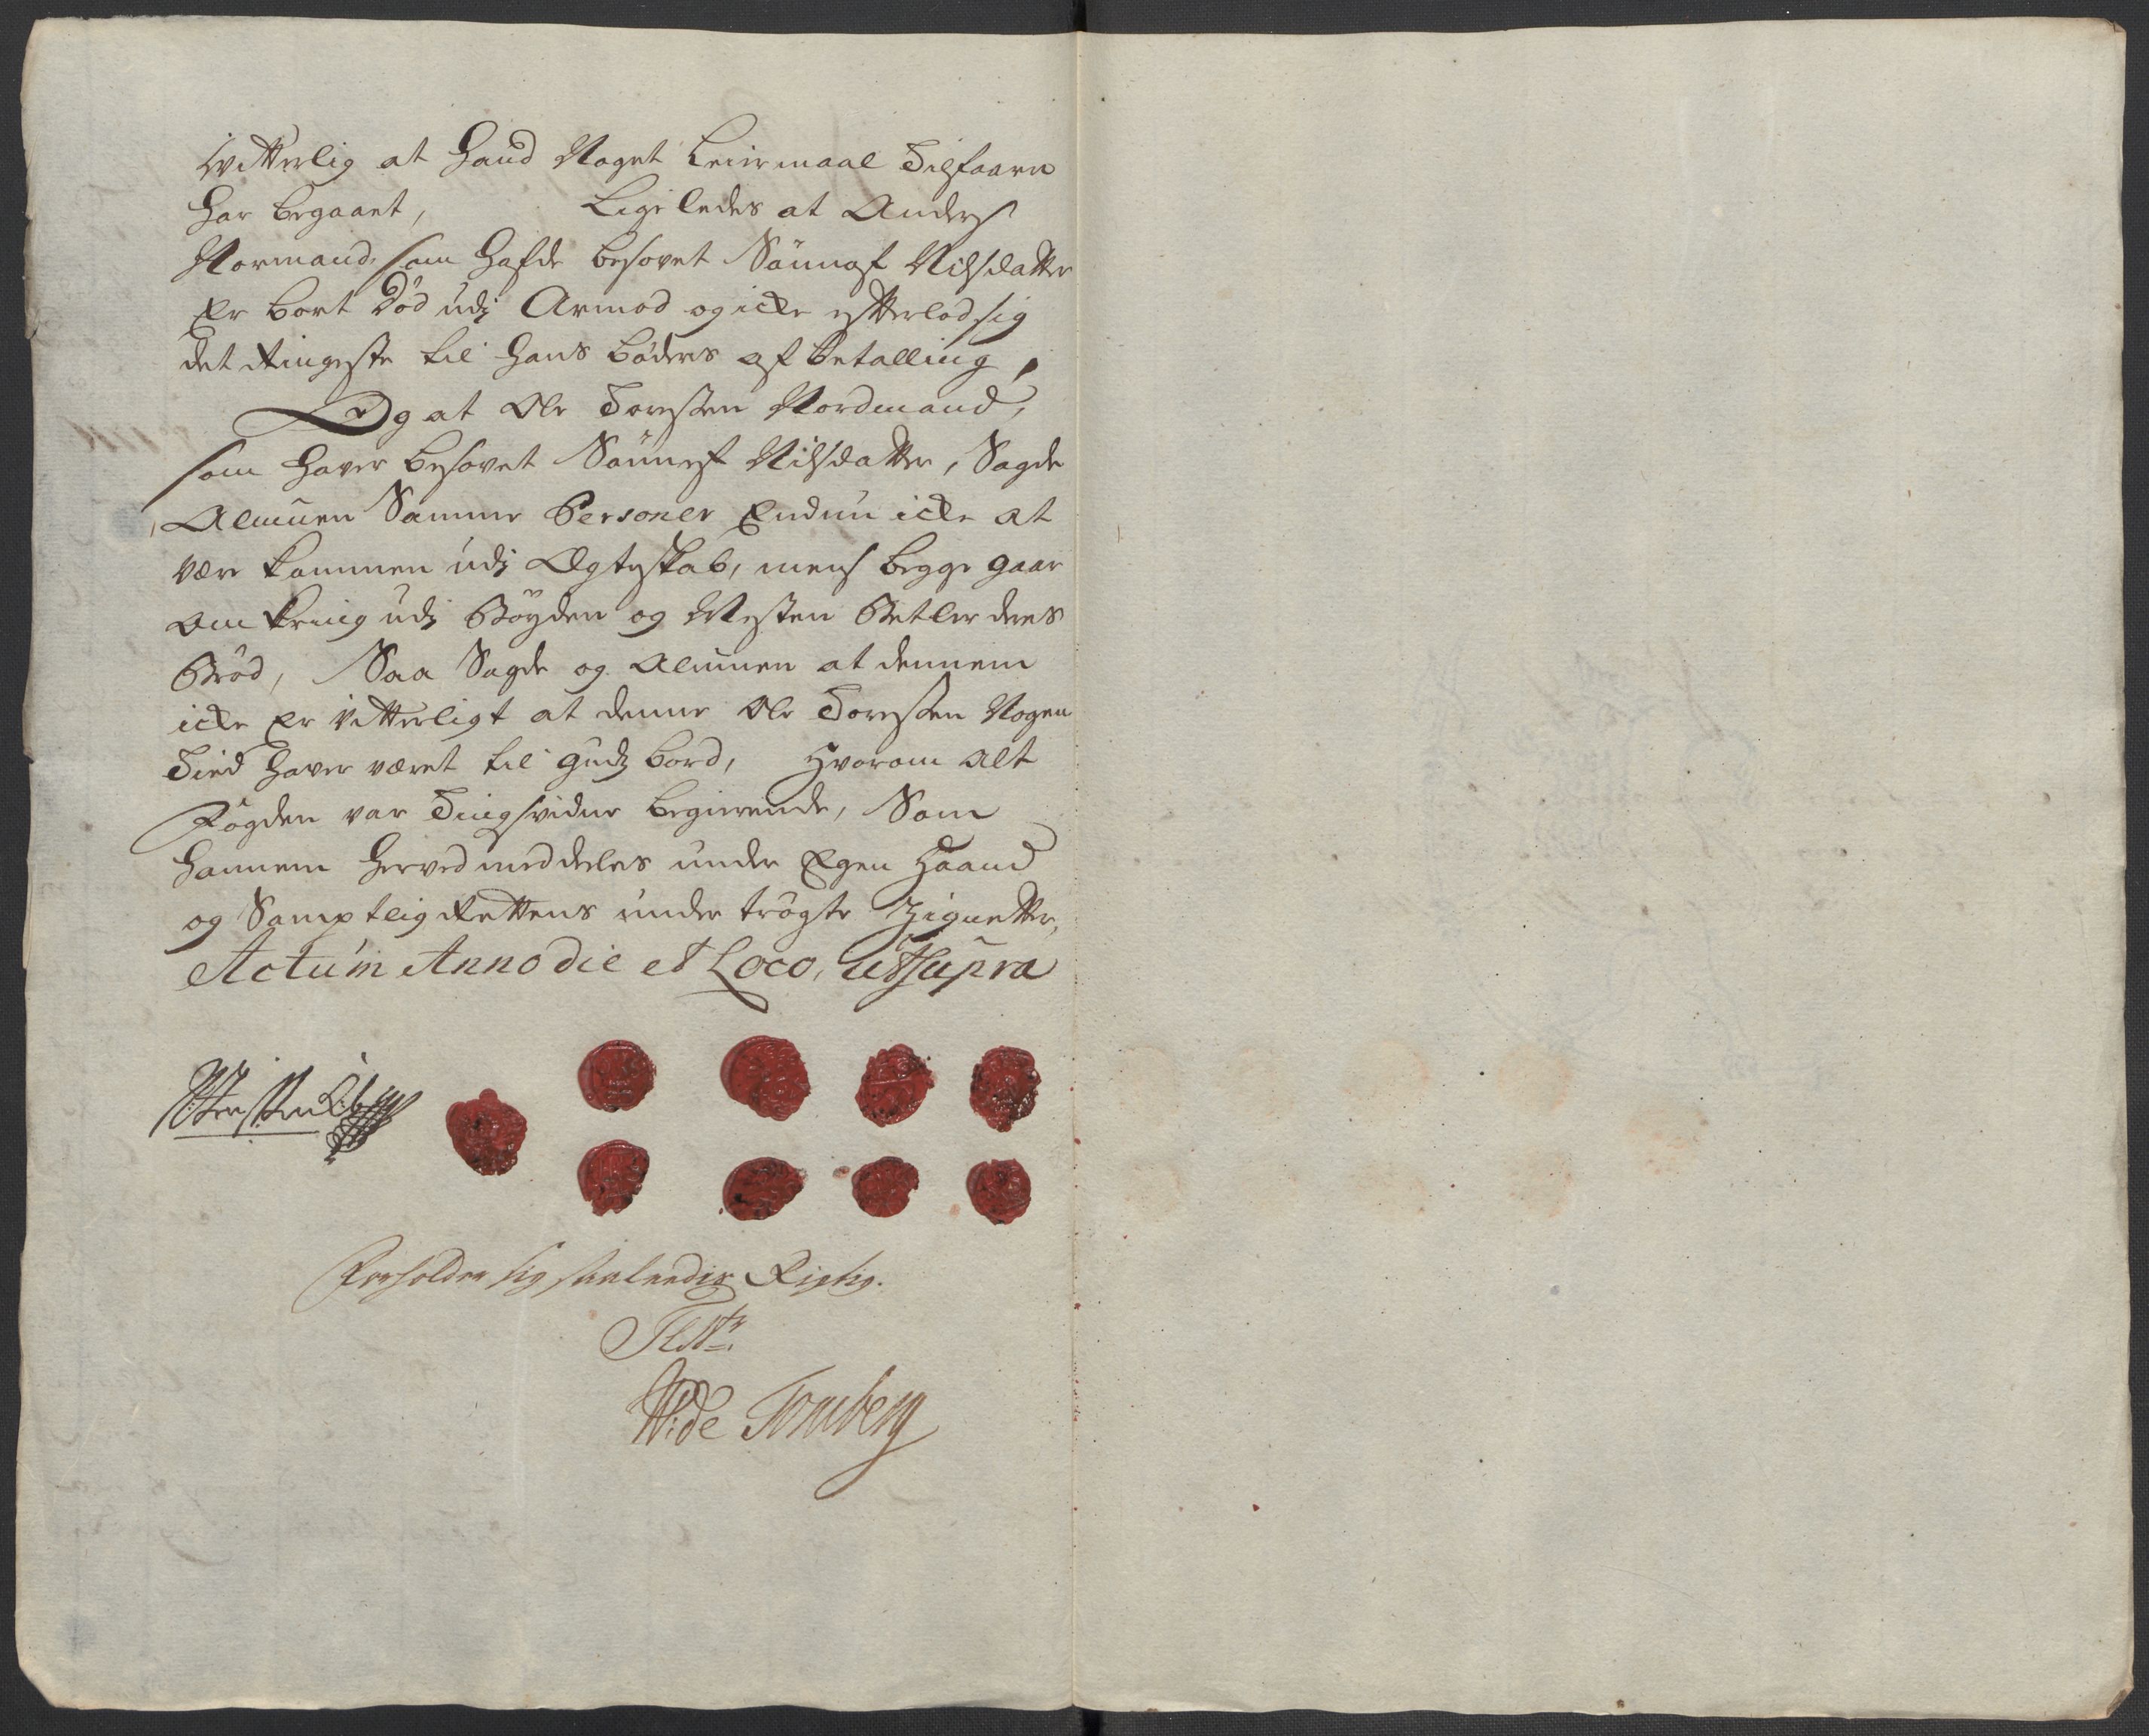 witterlig at hand Noget Leiermaal Tilfaarn
har begaaet, Ligeledes at Anders
Normand, som hafde besovet Sønnef Nilsdatter
Er bort død udj Armod og icke efterlod sig
det Ringeste til hans bøders af betalling,
Og at Ole Toressen Nordmand,
som haver besovet Sønnef Nilsdatter, Sagde
Almuen Samme Personer Endnu icke at
være kommen udj Ægteskab, mens begge gaar
om kring udj Bøyden og Mesten Betler deres
Brød, Saa Sagde og Almuen at dennem
icke Er Vitterligt at denne Ole Toressen Nogen
Tied haver været til gudz bord, Hvorom alt
Fogden var Tingsvidne begierende, Som
hannem herved meddeeles under Egen Haand
og Samptlig Rettens under trøgte Zignetter,
Actum Anno die et Loco, ut supra
Forholder sig saaledis Rigtig.
Test:
Wide Tornberg